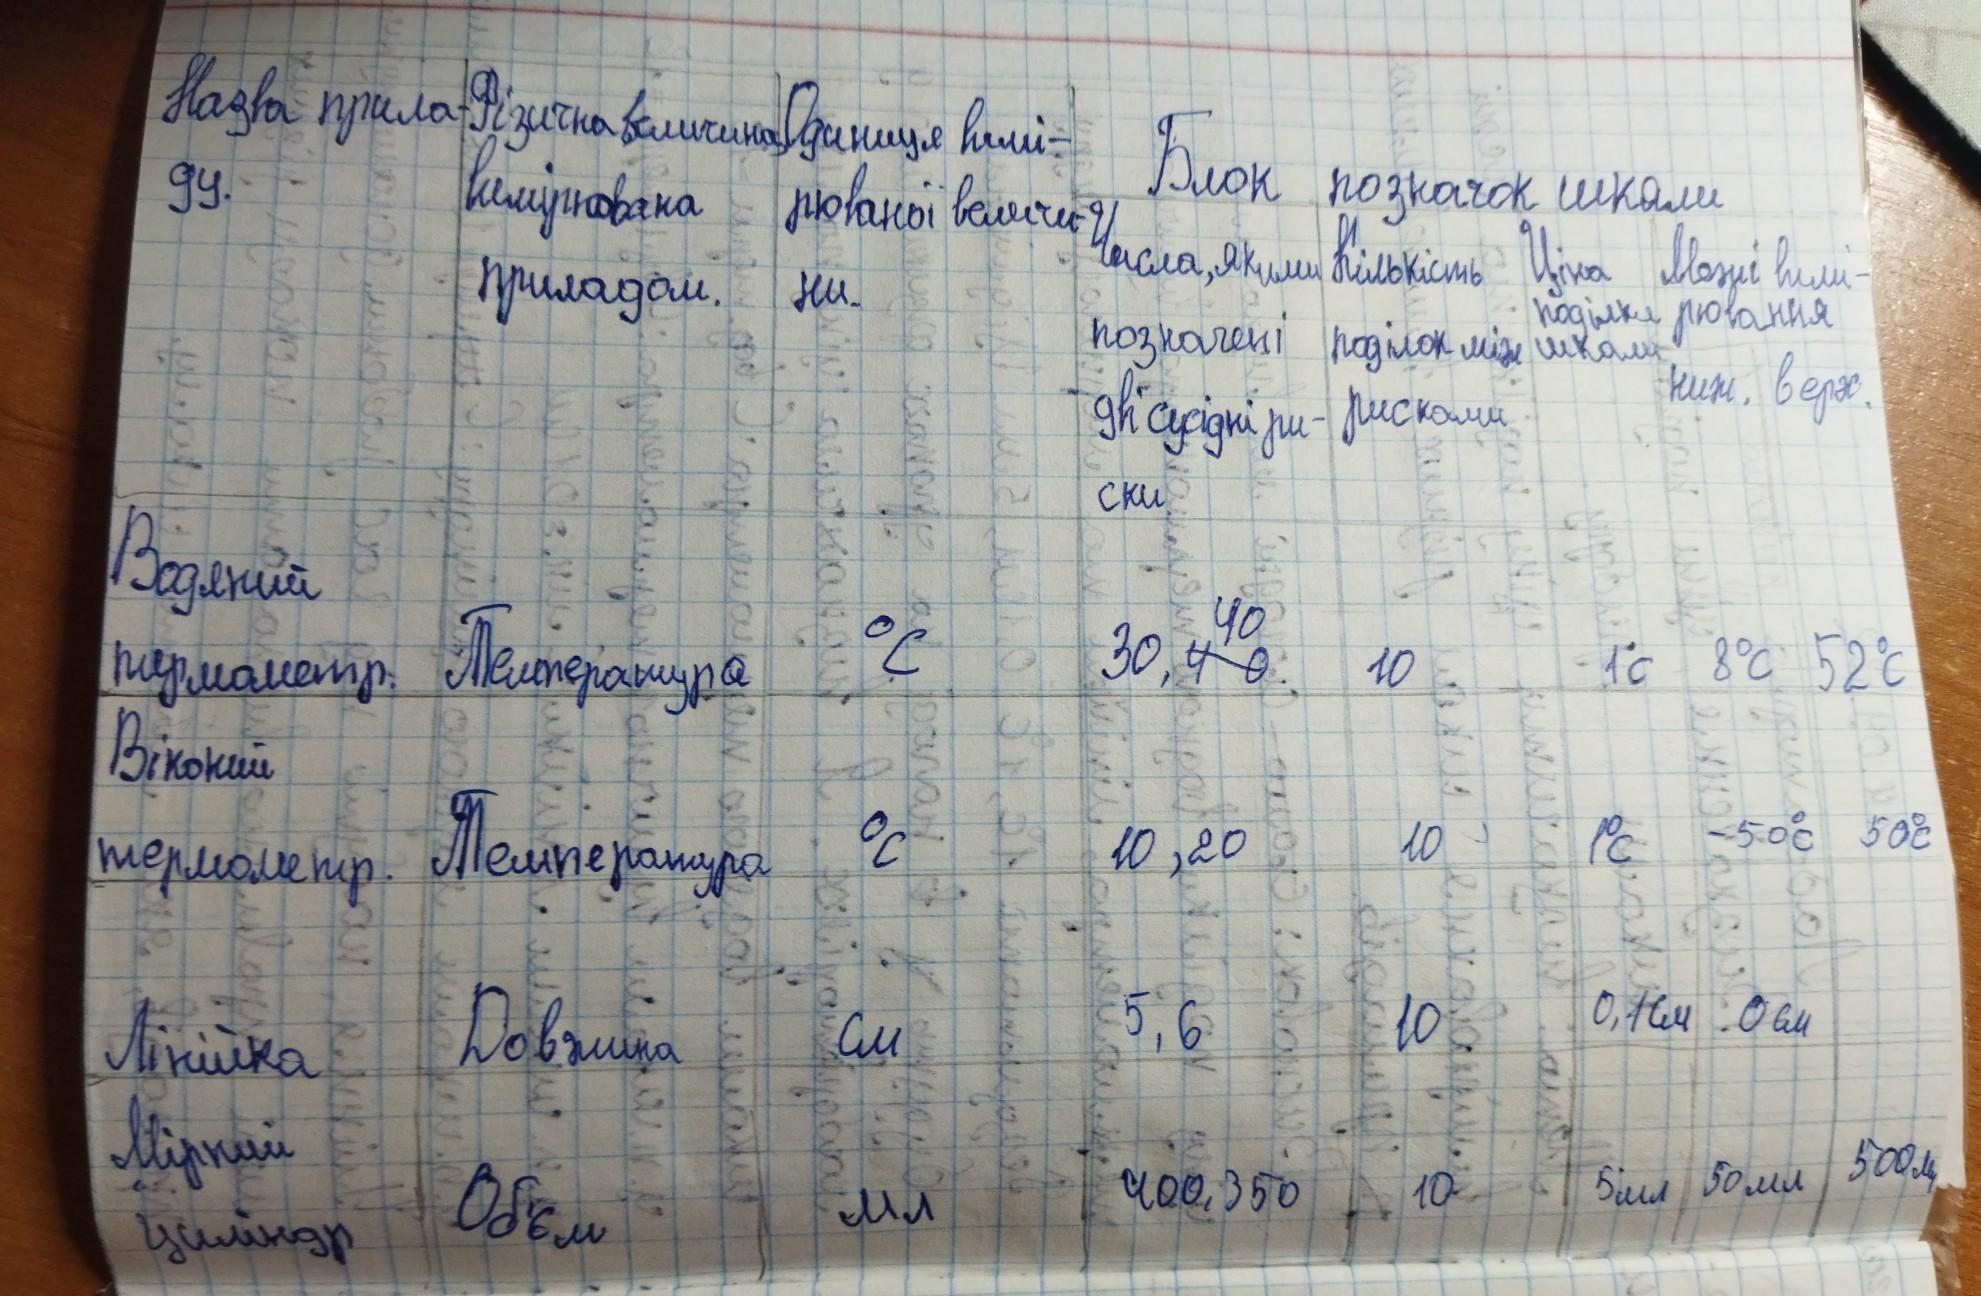 Назва прила-
ду.
Фізична величина,
вимірювана
приладом.
Одиниця вимі-
рюваної величи-
ни.
Блок позначок шкали
Числа, якими
позначені
дві сусідні ри-
ски
Кількість
поділок між
рисками
Ціна
поділки
шкали
Межі вимі-
рювання
ниж. верх.
Водяний
термометр. Температура °C 30, 40 10 1°C 8°C 52°C
Віконий
термометр. Температура °C 10, 20 10 1°C -50°C 50°C
Лінійка Довжина см 5, 6 10 0,1см 0 см
Мірний
циліндр Об'єм мл 400, 350 10 5мл 50 мл 500мл